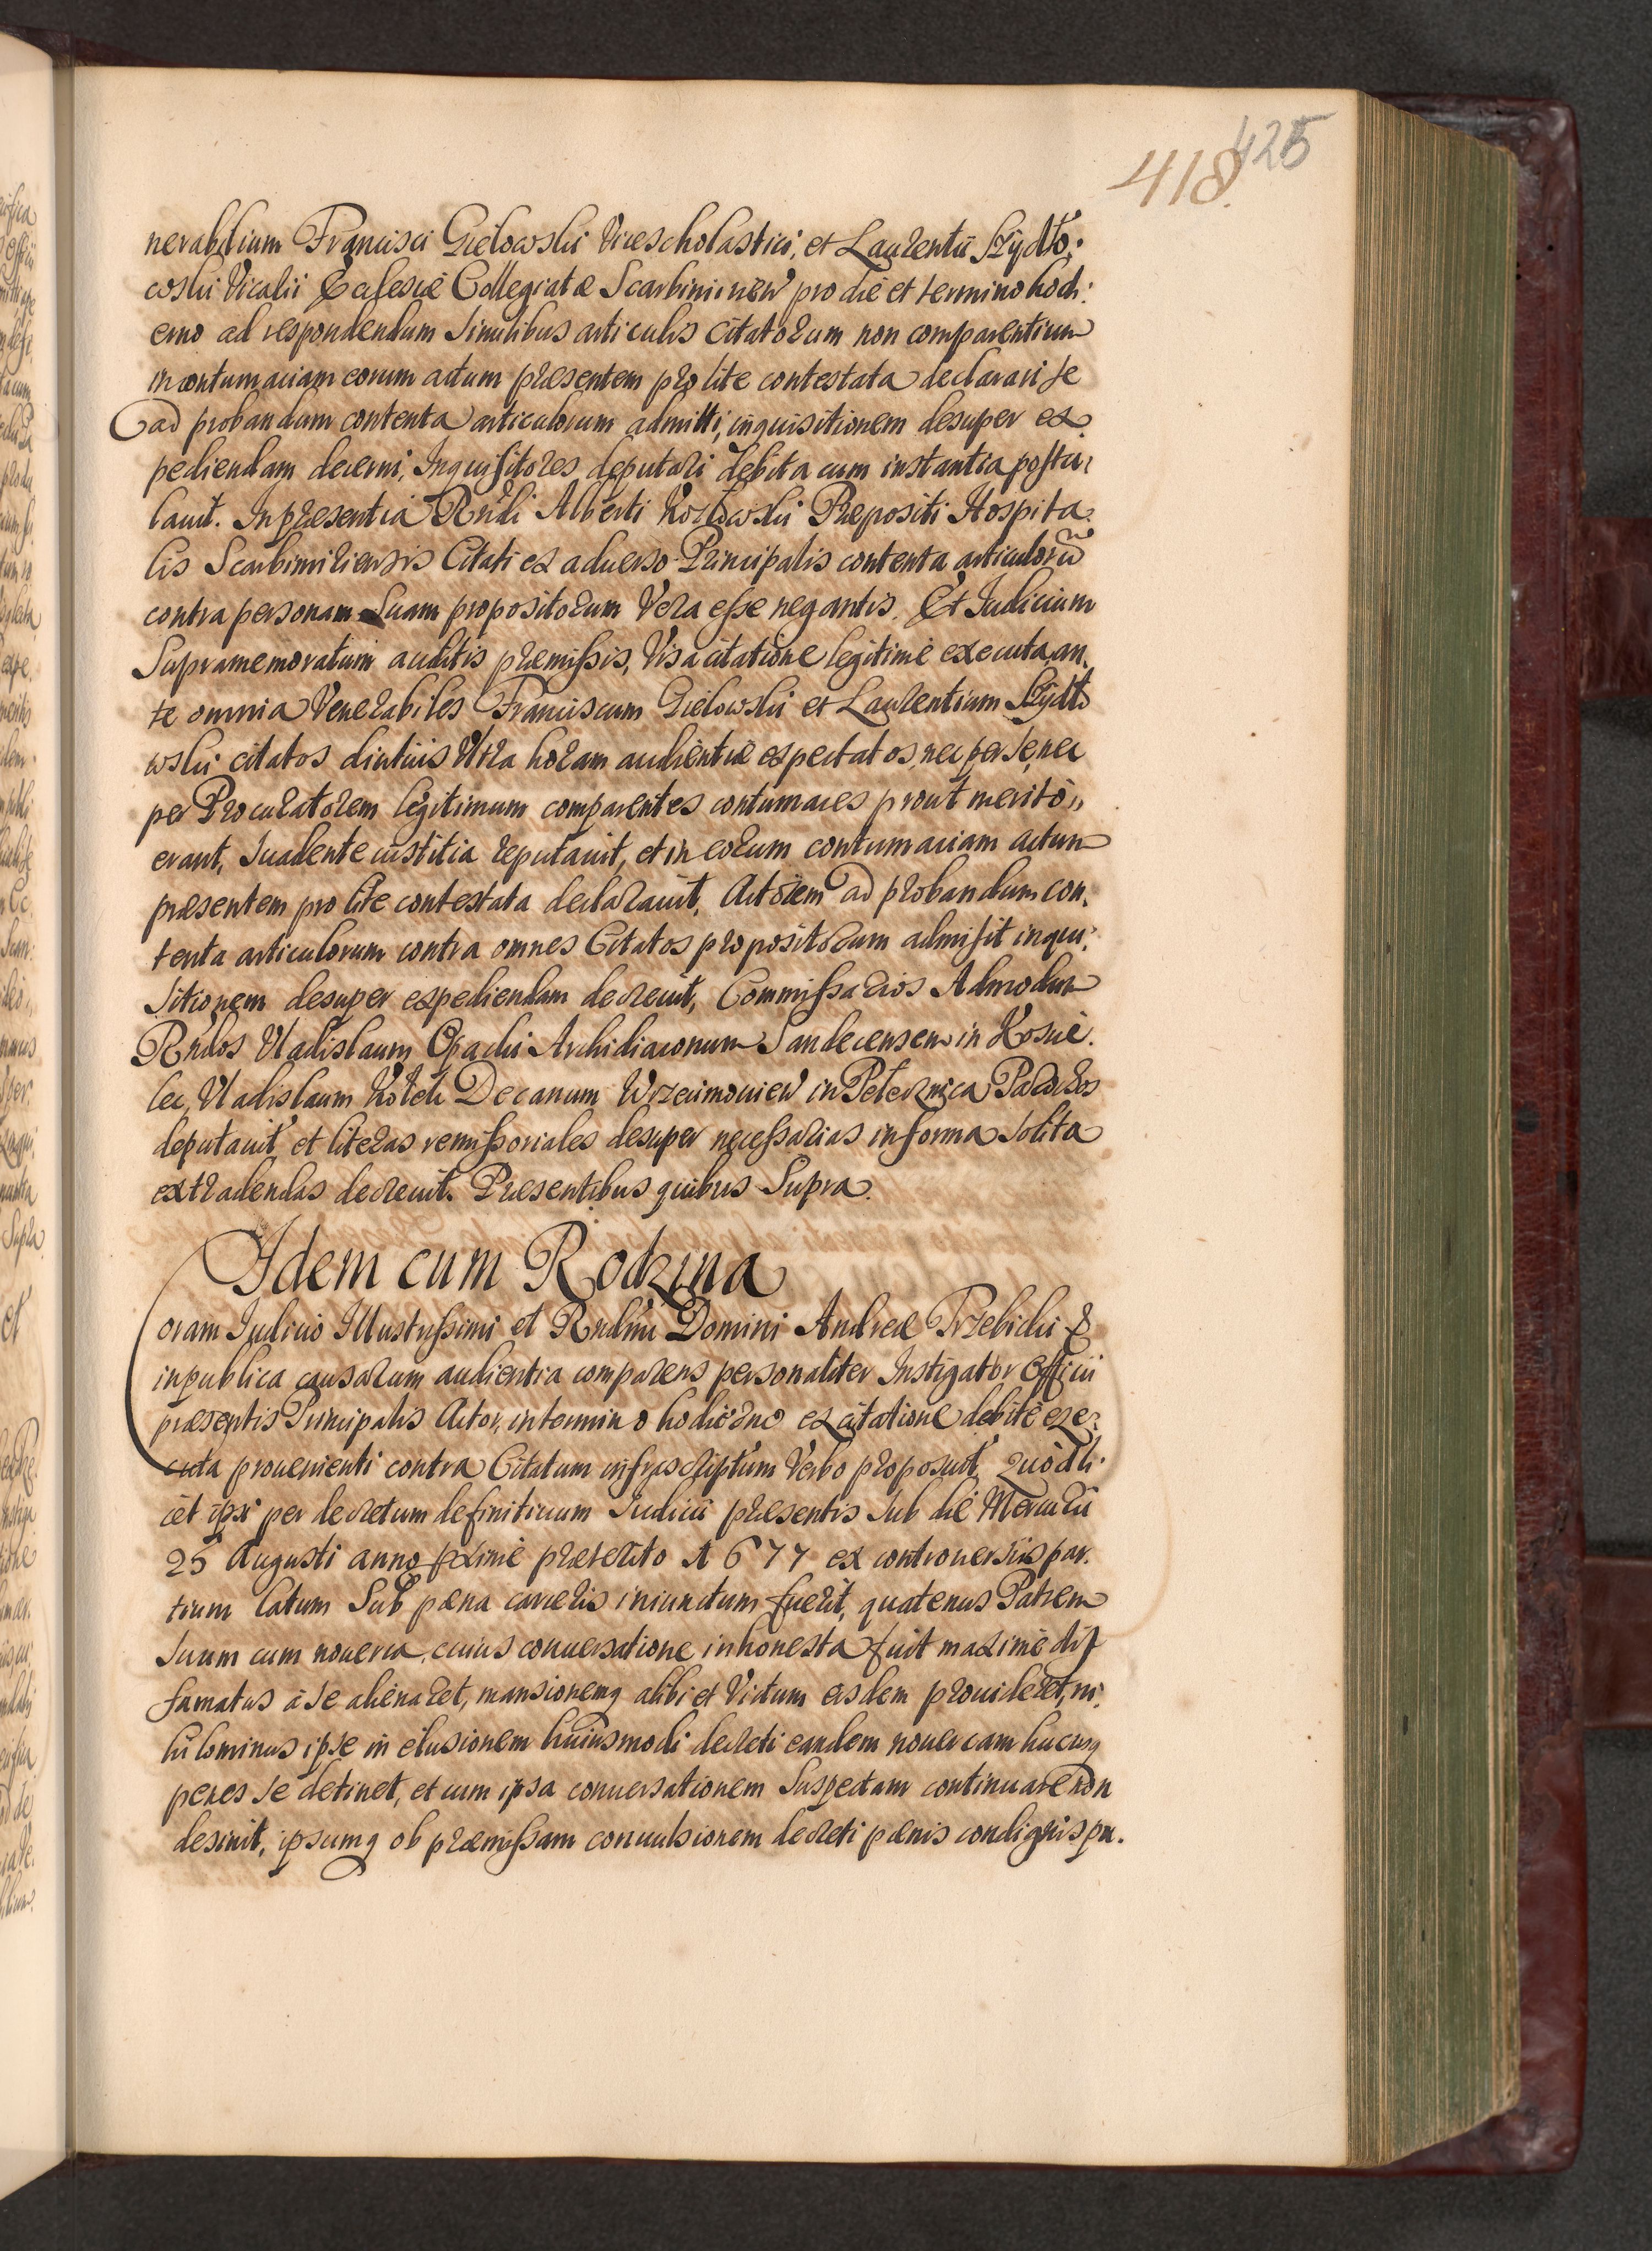 418. 425
nerabilium Francisci Gielowski Vicescholastici, et Laurentii Szydło:
wski Vicarii Ecclesiæ Collegiatæ Scarbimirien pro die et termino hodi:
erno ad respondendum similibus articulis citatorum non comparentium
in contumaciam eorum actum præsentem pro lite contestata declarari se
ad probandum contenta articulorum admitti, inquisitionem desuper ex
pediendam decerni, Inquisitores deputari debita cum instantia postu:
lauit. In præsentia Rndi Alberti Kozłowski Præpositi Hospita:
lis Scarbimiriensis Citati ex aduerso Principalis contenta articulorũ
contra personam Suam propositorum Vera esse negantis. Et Iudicium
Supramemoratum auditis præmissis, Visa citatione legitimè executa, an,
te omnia Venerabiles Franciscum Gielowski et Laurentium Szydło
wski citatos diutius Vltra horam audientiæ expectatos nec per se, nec
per Procuratorem legitimum comparentes contumaces prout meritò,,
erant, suadente iustitia reputauit, et in eorum contumaciam actum
præsentem pro lite contestata declarauit, Actorem ad probandum con,
tenta articulorum contra omnes Citatos propositorum admisit inqui:
sitionem desuper expediendam decreuit, Commissarios Admodum
Rndos Vladislaum Opacki Archidiaconum Sandecensem in Koscie.
lec, Vladislaum Decanum in Parochos
deputauit et literas remissoriales desuper necessarias in forma solita
extradendas decreuit. Præsentibus quibus Supra.
Idem cum Rodzina
oram Iudicio Illustrissimi et Rndmi Domini Andreæ Trzebicki &
in publica causarum audientia comparens personaliter Instigator Officii
præsentis Principalis Actor, in termino hodierno ex citatione debitè exe:
cuta prouenienti contra Citatum infrascriptum Verbo proposuit quòd li:
cèt ipsi per decretum definitiuum Iudicii præsentis sub die Mercurii
25 Augusti anno pxime præterito A 677 ex controuersiis par.
tium latum Sub pœna carceris iniunctum fuerit, quatenus Patrem
suum cum nouerca, cuius conuersatione inhonesta fuit maximè dif
famatus à se alienaret, mansionemq alibi et Victum eisdem prouideret, ni.
hilominus ipse in elusionem huiusmodi decreti eandem nouercam hucusq
penes se detinet, et cum ipsa conuersationem suspectam continuare non
desinit, ipsumq ob præmissam conuulsionem decreti pœnis condignis pu.